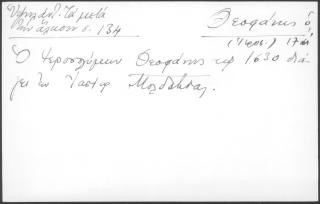 Ὑψηλάντ. Τὰ μετὰ
τὴν ἅλωσιν σ. 134
Θεοφάνης ὁ
(Ἱεροσ.) 17 αἰ
Ὁ Ἱεροσολύμων Θεοφάνης τῷ 1630 διά-
γει ἐν Μολδαβίᾳ.